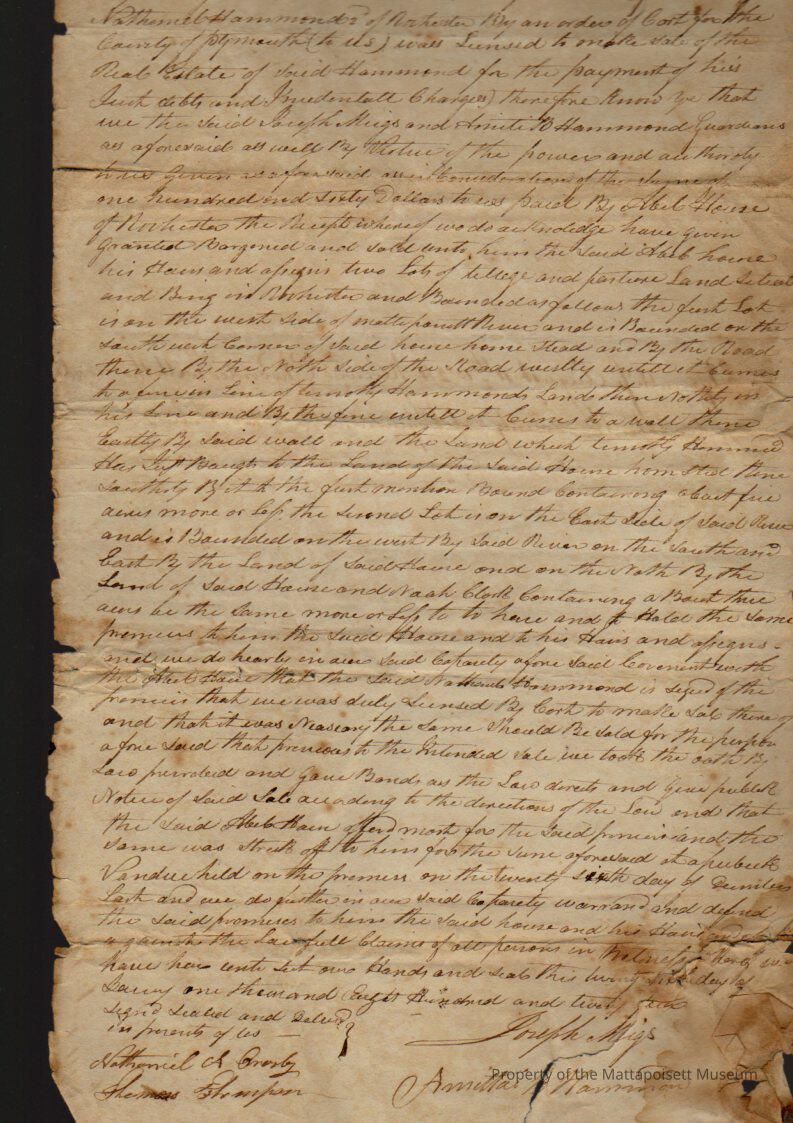 Nathaniel Hammond 2d of Rochester By an order of Cort for the
County of plymouth (to us) wass Lensed to make sale of the
Real Estate of said Hammond for the payment of his
Just debts and Insedentall Charges) therefore Know ye that
we the said Joseph Meigs and B Hammond Guardians
as aforesaid as well By Vertue of the power and authority
to us Given as aforesaid as in Consideration of the sume of
one hundred and sixty Dollars to us paid By Abel House
of Rochester the Recept whereof we do acknolidge have given
Granted Bargened and sold unto him the said Abel house
his Heirs and assigns two Lots of tillege and pasture Land
and Being in Rochester and Bounded as follows the first Lot
is on the west side of mattapoisett River and is Bounded on the
south west Corner of said house home stead and By the Road
thence By the Noth side of the Road westly untill it Cumes
to a fence in Line of timothy Hammonds Land then Nothly in
his Line and By the fence untill it Cumes to a wall thence
Eastly By said wall and the Land which timothy Hammond
Has Just Baught to the Land of the said House homsted thence
Southly By it to the first mention Bound Containing about five
acres more or Less the second Lot is on the East side of said River
and is Bounded on the west By said River on the South and
East By the Land of said House and on the Noth By the
Land of said House and Noah Clark Containing a Bout three
acres be the same more or Less to to have and to Hold the same
premises to him the said House and to his Hairs and assigns
and we do hearby in our said Capasety afore said Covenent with
the Abel House that the said Nathaniel Hammond is of the
premises that we was duly Lensed By Cort to make sale there of
and that it was the same should Be sold for the
afore said that previous to the Intended sale we took the oath By
Law and Gave Bonds as the Law directs and Give publick
Notice of said sale according to the directions of the Law and that
the said Abel most for the said premises and the
same was Struk off to him for the sume aforesaid at a publick
Vandue held on the premises on the twenty day of
Last and we do further in our said Capasety warrand and defend
the said premises to him the said house and his Hairs
against the Lawfull Claims of all persons in Witness we
have here unto set our Hands and seals this day of
one thousand Eight Hundred and
signd sealed and
in presents of us
Joseph Migs
Nathaniel A Crosby
Thomas
Hammond
Property of the Mattapoisett Museum